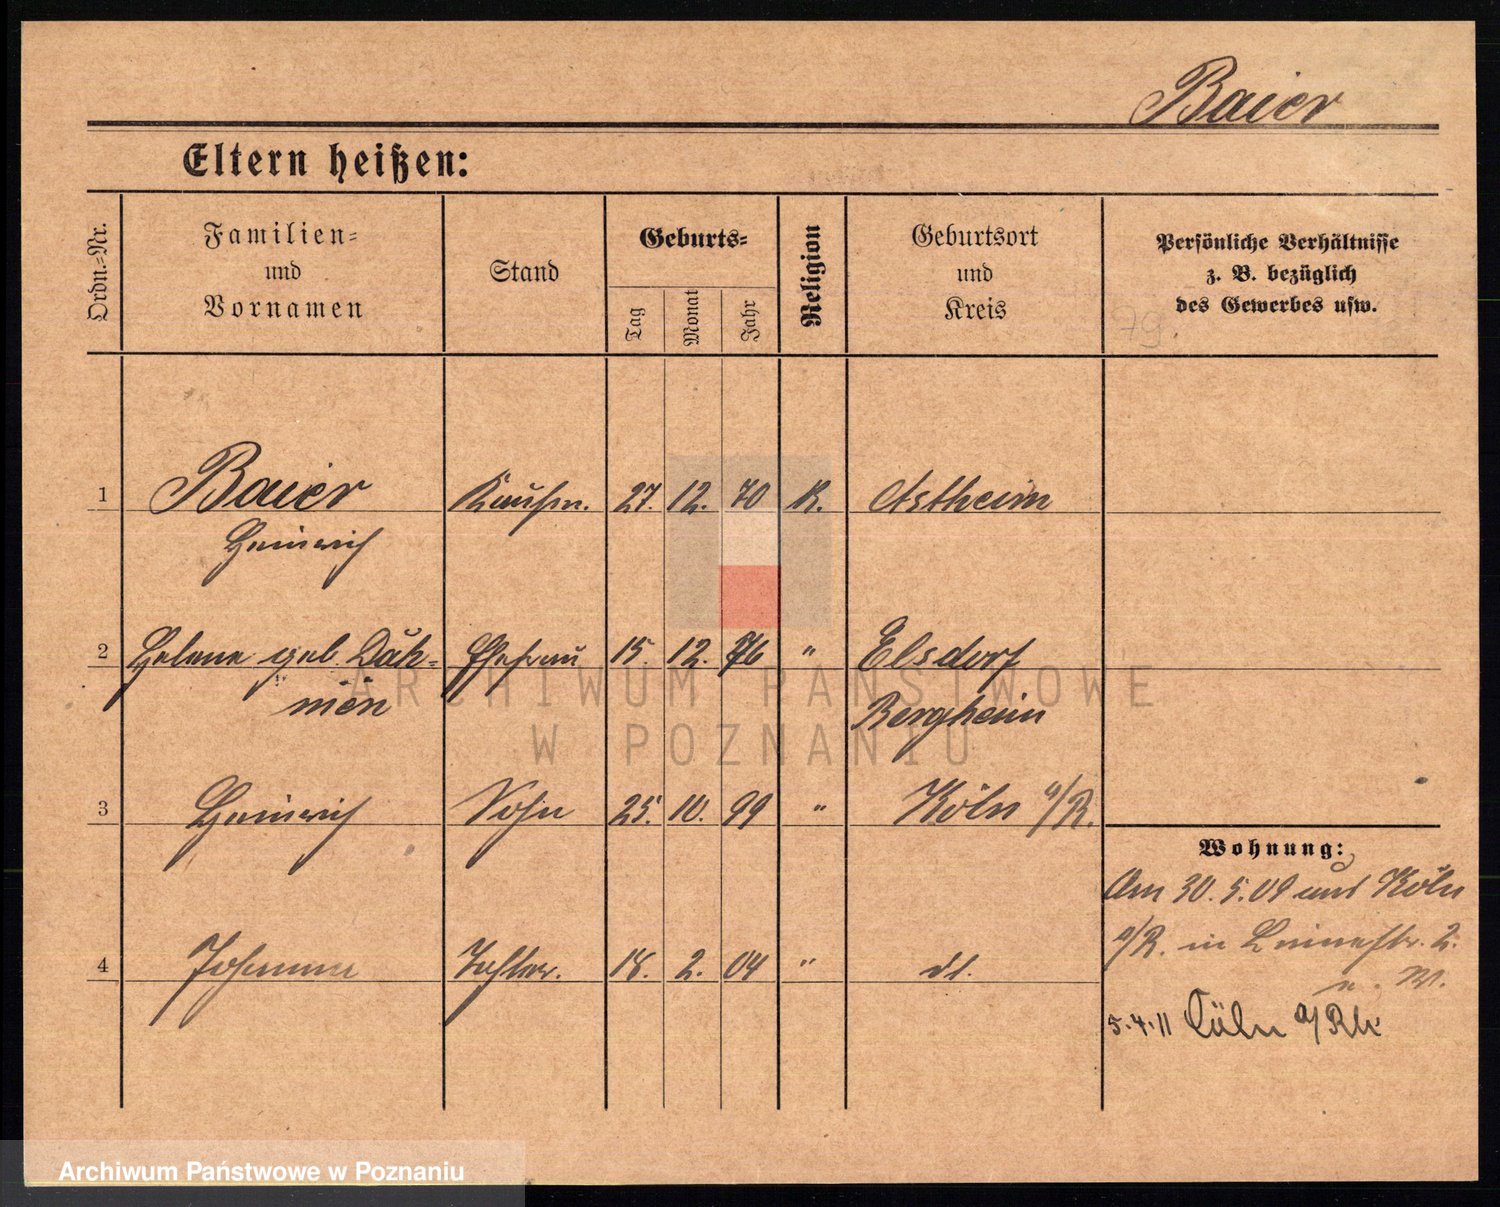 Baier
Eltern heißen:
Ordn.-Nr.
Familien-
und
Vornamen
Stand
Geburts-
Tag
Monat
Jahr
Religion
Geburtsort
und
Kreis
Persönliche Verhältnisse
z. B. bezüglich
des Gewerbes usw.
79.
1 Baier Kaufm. 27. 12. 70 K. Astheim
Heinrich
2 Helene geb. Däh- Ehefrau 15. 12. 76 " Elsdorf
mén Bergheim
3 Heinrich Sohn 25. 10. 99 " Köln a/R.
4 Johanna Tochter. 18. 2. 04 " dt.
Wohnung:
Am 30. 5. 09 und Köln
a/R. in 2.
n. W.
5.4.11 Cöln a/Rh
ARCHIWUM PAŃSTWOWE
W POZNANIU
Archiwum Państwowe w Poznaniu